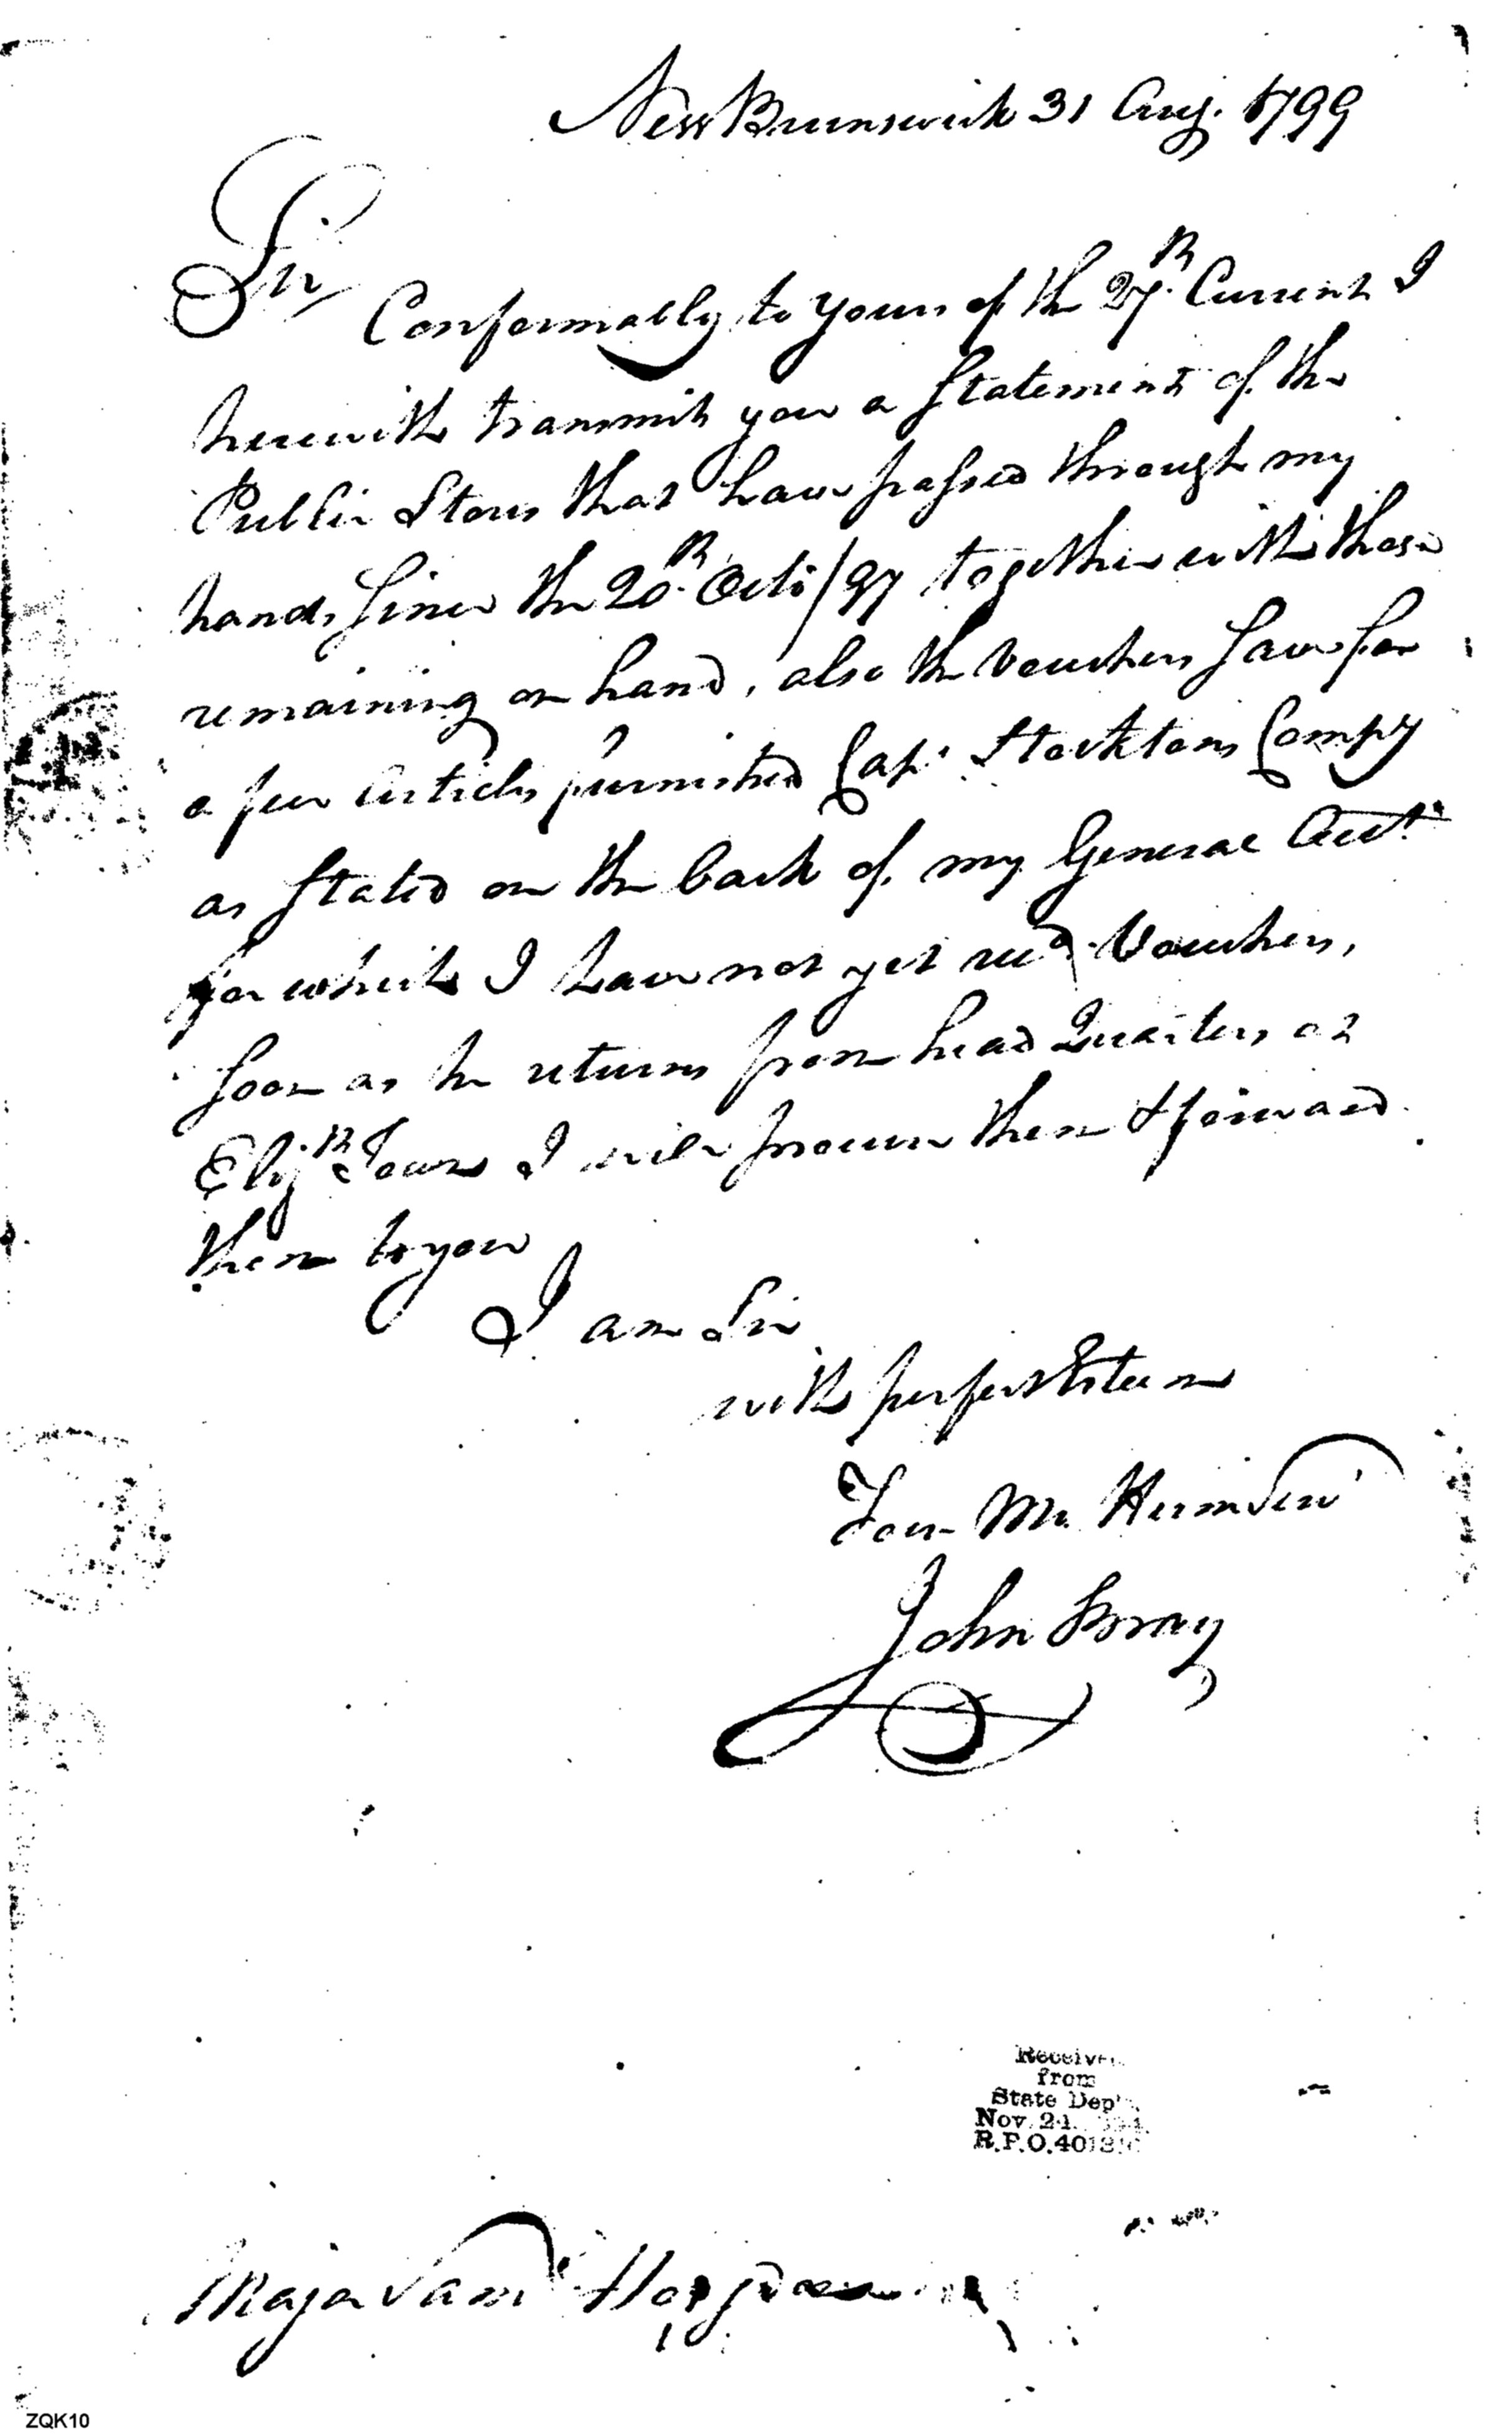 New Brunswick 31 Aug. 1799
Sir
Conformably to yours of the 27th. Current I
herewith transmit you a Statement of the
Public Stores that have passed through my
hands Since the 20th. Octo/97 together with those
remaining on hand, also the Vouchers Save for
a few Articles furnished Capt. Stocktons Compy
as Stated on the back of my General Acct.
for which I have not yet recd. Vouchers,
Soon as he returns from head Quarters at
Elizth Town I will procure them & forward
them to you
I am Sir
with perfect Esteem
Your Mo. Humb Serv
John Bray
Received
from
State Dep
Nov. 21.
R.P.O.401
Major Saml Hodgdon
ZQK10